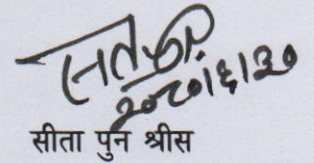 २०८०।६।३०
सीता पुन श्रीस